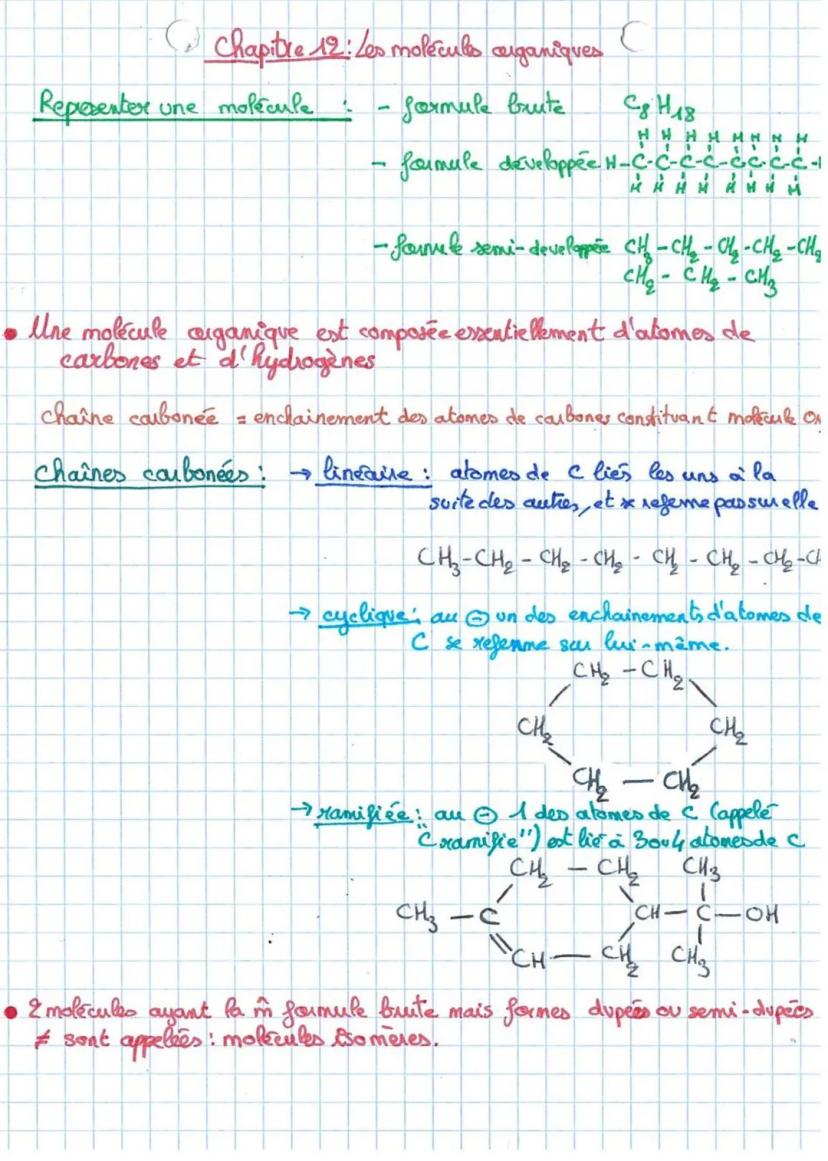 Chapitre 12: Les molécules organiques
Représenter une molécule : - formule brute C8H18
H H H H H H H H
- formule développée H-C-C-C-C-C-C-C-C-
H H H H H H H H
- formule semi-développée CH3-CH2-CH2-CH2-CH2
CH2-CH2-CH3
• Une molécule organique est composée essentiellement d'atomes de
carbones et d'hydrogènes
chaîne carbonée = enchainement des atomes de carbones constituant molécule
Chaînes carbonées : → linéaire : atomes de C liés les uns à la
suite des autres, et se referme pas sur elle
CH3-CH2-CH2-CH2-CH2-CH2-CH2-C
→ cyclique : au ⊖ un des enchainements d'atomes de
C se referme sur lui-même.
CH2-CH2
CH2 CH2
CH2—CH2
→ ramifiée : au ⊖ 1 des atomes de C (appelé
"C ramifié") est lié à 3 ou 4 atomes de C
CH2—CH2 CH3
CH3—C CH—C—OH
CH—CH2 CH3
• 2 molécules ayant la m̂ formule brute mais formes dvpées ou semi-dvpées
≠ sont appelées : molécules isomères.